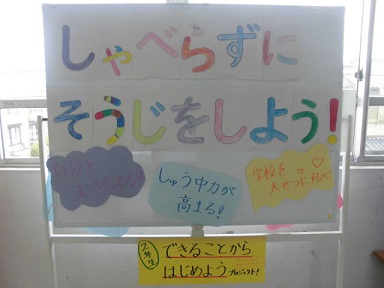 しゃべらずに
そうじをしよう!
自分と
しゅう中力が
高まる!
学校を
大せつにする心
2年生
できることから
はじめよう プロジェクト!